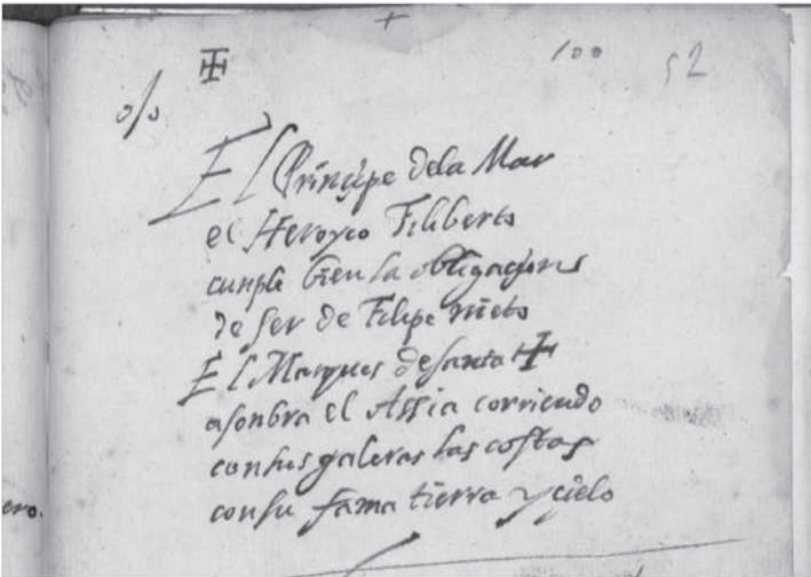 100 52
El Prinçipe dela Mar
el Heroyco Filiberto
cunple bien la obligaçion
de ser de Felipe nieto
El Marques de santa ✠
asonbra el Assia corriendo
con sus galeras las costas
con su fama tierra y cielo
ero.